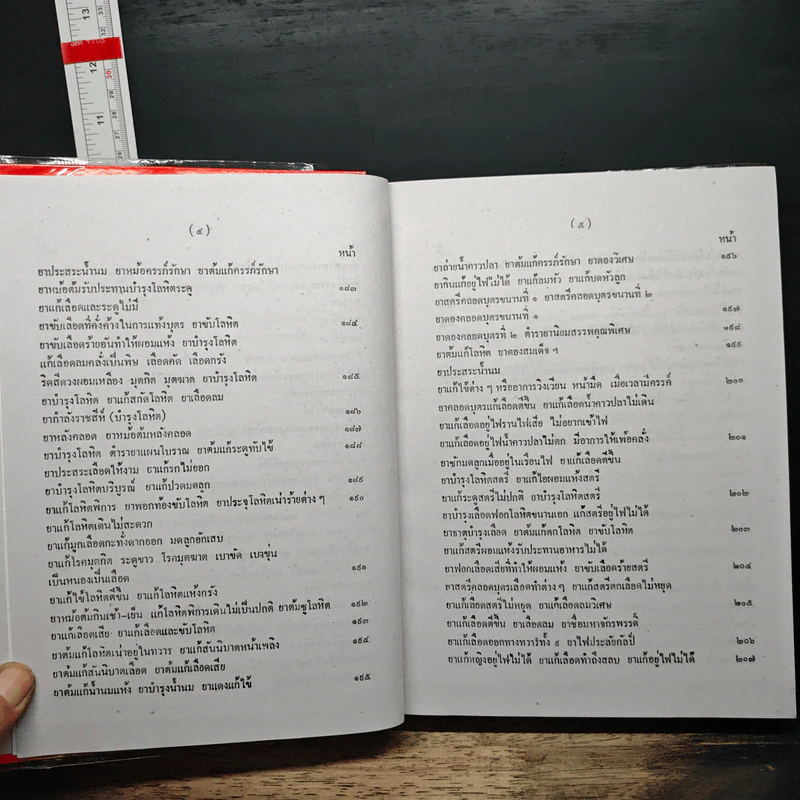 13
12
11
30
(๔)
หน้า
ยาประสระน้ำนม ยาหม้อครรภ์รักษา ยาต้มแก้ครรภ์รักษา
ยาหม้อต้มรับประทานบำรุงโลหิตระดู ๑๘๓
ยาแก้เลือดและระดูไม่มี
ยาขับเลือดที่คั่งค้างในการแท้งบุตร ยาขับโลหิต ๑๘๔
ยาขับเลือดร้ายอันทำให้ผอมแห้ง ยาบำรุงโลหิต
แก้เลือดลมคลั่งเป็นพิษ เลือดคัด เลือดกรัง
ริดสีดวงผอมเหลือง มุตกิด มุตฆาต ยาบำรุงโลหิต ๑๘๕
ยาบำรุงโลหิต ยาแก้สกัดโลหิต ยาเลือดลม
ยากำลังราชสีห์ (บำรุงโลหิต) ๑๘๖
ยาหลังคลอด ยาหม้อต้มหลังคลอด ๑๘๗
ยาบำรุงโลหิต ตำรายาแผนโบราณ ยาต้มแก้ระดูทับไข้ ๑๘๘
ยาประสระเลือดให้งาม ยาแก้รกไม่ออก
ยาบำรุงโลหิตบริบูรณ์ ยาแก้ปวดมดลูก ๑๘๙
ยาแก้โลหิตพิการ ยาพอกท้องขับโลหิต ยาประจุโลหิตเน่าร้ายต่างๆ ๑๙๐
ยาแก้โลหิตเดินไม่สะดวก
ยาแก้มูกเลือดกะทั่งดากออก มดลูกอักเสบ
ยาแก้โรคมุตกิต ระดูขาว โรคมุตฆาต เบาขัด เบาขุ่น
เป็นหนองเป็นเลือด ๑๙๑
ยาแก้ไข้โลหิตตีขึ้น ยาแก้โลหิตแห้งกรัง
ยาหม้อต้มกินเช้า-เย็น แก้โลหิตพิการเดินไม่เป็นปกติ ยาต้มชูโลหิต ๑๙๒
ยาแก้เลือดเสีย ยาแก้เลือดและขับโลหิต
ยาต้มแก้โลหิตเน่าอยู่ในทวาร ยาแก้สันนิบาตหน้าเพลิง ๑๙๔
ยาต้มแก้สันนิบาตเลือด ยาต้มแก้เลือดเสีย
ยาต้มแก้น้ำนมแห้ง ยาบำรุงน้ำนม ยาแดงแก้ไข้ ๑๙๕
(๕)
หน้า
ยาถ่ายน้ำคาวปลา ยาต้มแก้ครรภ์รักษา ยาดองวิเศษ ๑๙๖
ยากินแก้อยู่ไฟไม่ได้ ยาแก้ลมหัว ยาแก้บดหัวลูก
ยาสตรีคลอดบุตรขนานที่ ๑ ยาสตรีคลอดบุตรขนานที่ ๒
ยาดองคลอดบุตรขนานที่ ๑ ๑๙๗
ยาดองคลอดบุตรที่ ๒ ตำรายานิยมสรรพคุณพิเศษ ๑๙๘
ยาต้มแก้โลหิต ยาดองสมเด็จฯ ๑๙๙
ยาประสระน้ำนม
ยาแก้ไข้ต่างๆ หรืออาการวิงเวียน หน้ามืด เมื่อเวลามีครรค์ ๒๐๐
ยาคลอดบุตรแก้เลือดตีขึ้น ยาแก้เลือดน้ำคาวปลาไม่เดิน
ยาแก้เลือดอยู่ไฟรานไฟเสีย ไม่อยากเข้าไฟ
ยาแก้เลือดอยู่ไฟน้ำคาวปลาไม่ตก มีอาการให้เพ้อคลั่ง ๒๐๑
ยาชักมดลูกเมื่ออยู่ในเรือนไฟ ยาแก้เลือดตีขึ้น
ยาบำรุงโลหิตสตรี ยาแก้ไอผอมแห้งสตรี
ยาแก้ระดูสตรีไม่ปกติ ยาบำรุงโลหิตสตรี ๒๐๒
ยาบำรุงเลือดฟอกโลหิตขนานเอก แก้สตรีอยู่ไฟไม่ได้
ยาธาตุบำรุงเลือด ยาต้มแก้ตกโลหิต ยาขับโลหิต ๒๐๓
ยาแก้สตรีผอมแห้งรับประทานอาหารไม่ได้
ยาฟอกเลือดเสียที่ทำให้ผอมแห้ง ยาขับเลือดร้ายสตรี ๒๐๔
ยาสตรีคลอดบุตรเลือดทำต่างๆ ยาแก้สตรีตกเลือดไม่หยุด
ยาแก้เลือดสตรีไม่หยุด ยาแก้เลือดลมวิเศษ ๒๐๕
ยาแก้เลือดตีขึ้น ยาเลือดลม ยาชื่อมหาจักรพรรดิ์
ยาแก้เลือดออกทางทวารทั้ง ๙ ยาไฟประลัยกัลป์ ๒๐๖
ยาแก้หญิงอยู่ไฟไม่ได้ ยาแก้เลือดทำถึงสลบ ยาแก้อยู่ไฟไม่ได้ ๒๐๗